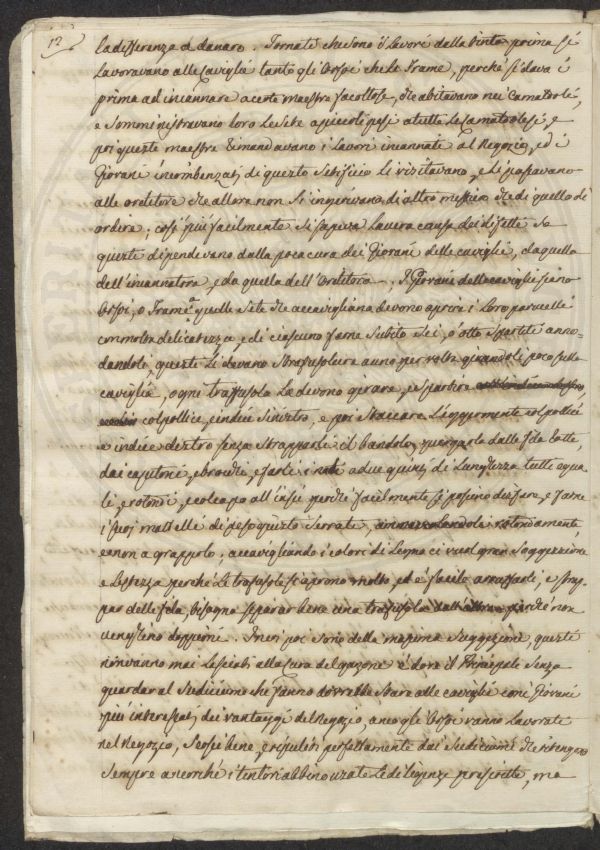 12
la differenza a danaro. Tornate che sono i lavori dalla tinta prima si
lavoravano alle Caviglie tanto gli Orsoi che le Trame, perche si dava i
prima ad incannare a certe maestre facoltose, che abitavano nei Camaldoli,
e Somministravano loro le Sete a piccoli pesi a tutte le Camaldolesi, e
poi queste maestre rimandavano i lavori incannati al Negozio, ed i
Giovani incombenzati di questo Setificio li visitavano, e li passavano
alle orditore che allora non si ingerivano di altro mestiero che di quello di
ordire, così più facilmente si sapeva la vera causa dei difetti se
queste dipendevano dalla poca cura dei Giovani delle caviglie, da quella
dell'incannatora, e da quella dell'Orditora. I Giovani delle caviglie siano
Orsoi, o Trame quelle Sete che accavigliano devono aprire i loro
con molta delicatezza, e di ciascuno farne subito sei, o otto spartite anno-
dandoli, queste li devano a uno per volta girandoli poco sulla
caviglia, ogni trafusola la devono girare, e spartire
col pollice, e indice sinistro, e poi staccare leggermente col pollice
e indice destro senza strapparli il bandolo, purgarla dalle fila rotte,
dai capitoni, e brocchi, e farli i a due quinti di lunghezza tutte egua-
li e rotondi, e col capo all'insù perché facilmente si possino disfare, e farne
i suoi mattelli di peso giusto serrate, rotondamente,
e non a grappolo; accavigliando i colori di Legno ci vuol gran Soggezzione
e Lestezza perche le trafusole si aprono molto, ed è facile arruffarli, e strap-
par delle fila, bisogna separar bene una trafusola dall'altra perche non
venghino doppioni. I neri poi sono della massima Suggezione, questi
non vanno mai lasciati alla Cura del garzone è dove il Principale senza
guardar al Sudiciume che fanno dovrebbe stare alle caviglie con i Giovani
più interessati dei vantaggi del Negozio, anco gli Orsoi vanno Lavorati
nel Negozio, Scossi bene, e ripuliti perfettamente dai Sudiciumi che tengono
sempre ancorché i tintori abbino usate le diligenze prescritte, ma